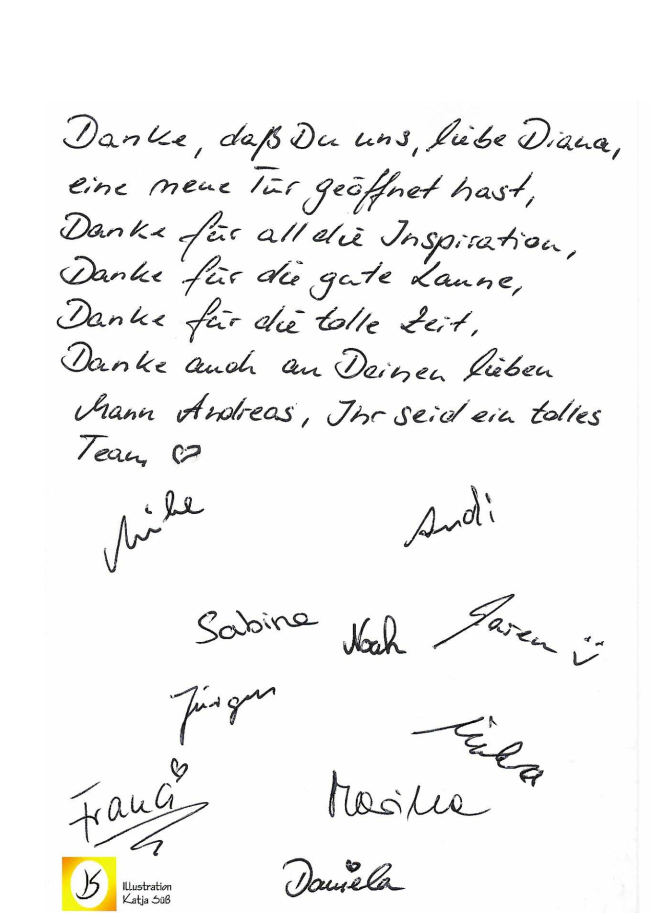 Danke, daß Du uns, liebe Diana,
eine neue Tür geöffnet hast,
Danke für all die Inspiration,
Danke für die gute Laune,
Danke für die tolle Zeit,
Danke auch an Deinen lieben
Mann Andreas, Ihr seid ein tolles
Team ♡
Andi
Sabine Noah
Jürgen
Franci
Daniela
JS
Illustration
Katja Süß